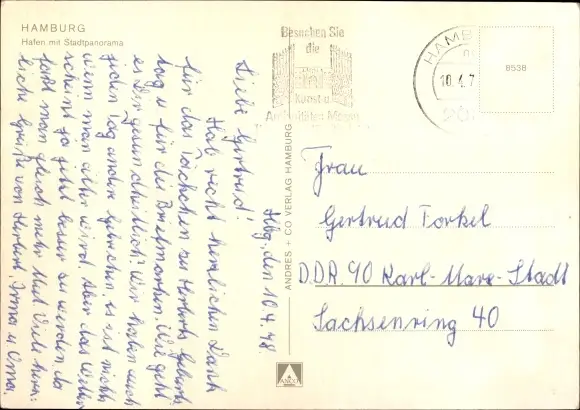 HAMBURG
Hafen mit Stadtpanorama
Besuchen Sie
die
Kunst u.
Antiquitäten Messe
HAMBU
10.4.7
8538
Hbg., den 10.4.78.
Liebe Gertrud!
Hab recht herzlichen Dank
für das Täschchen zu Herberts Geburts-
tag u. für die Briefmarken. Wie geht
es Dir gesundheitlich? Wir haben auch
jeden Tag andere Gebrechen, es ist nicht
wenn man älter wird. Aber das Wetter
scheint ja jetzt besser zu werden da
hat man gleich mehr Mut. Viele herz-
liche Grüße von Herbert, Irma u. Oma.
ANDRES + CO VERLAG HAMBURG
ANCO
Frau
Gertrud Torkel
DDR. 90 Karl-Marx-Stadt
Sachsenring 40